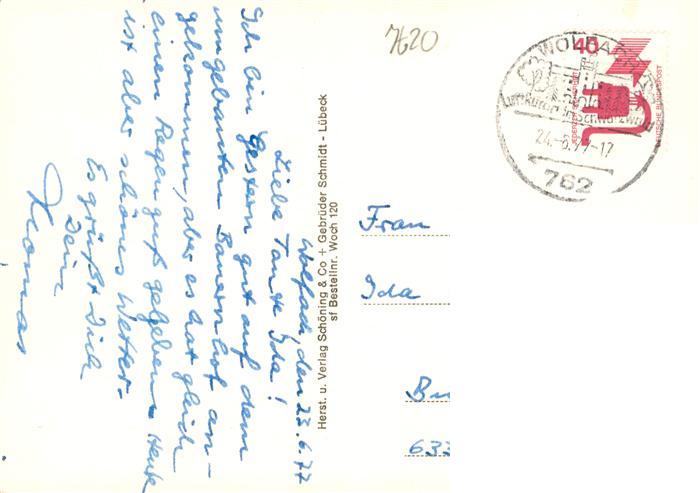 Wolfach, den 23.6.77
Liebe Tante Ida!
Ich bin gestern gut auf dem
umgebauten Bauernhof an-
gekommen, aber es hat gleich
einen Regenguß gegeben. Heute
ist aber schönes Wetter.
Es grüßt Dich
Dein
Thomas
Herst. u. Verlag Schöning & Co + Gebrüder Schmidt - Lübeck
sf Bestellnr. Woch 120
7620
40
DEUTSCHE BUNDESPOST
WOLFACH
Luftkurort
Schwarzwald
24.-6.77-17
762
Frau
Ida
Bu
633